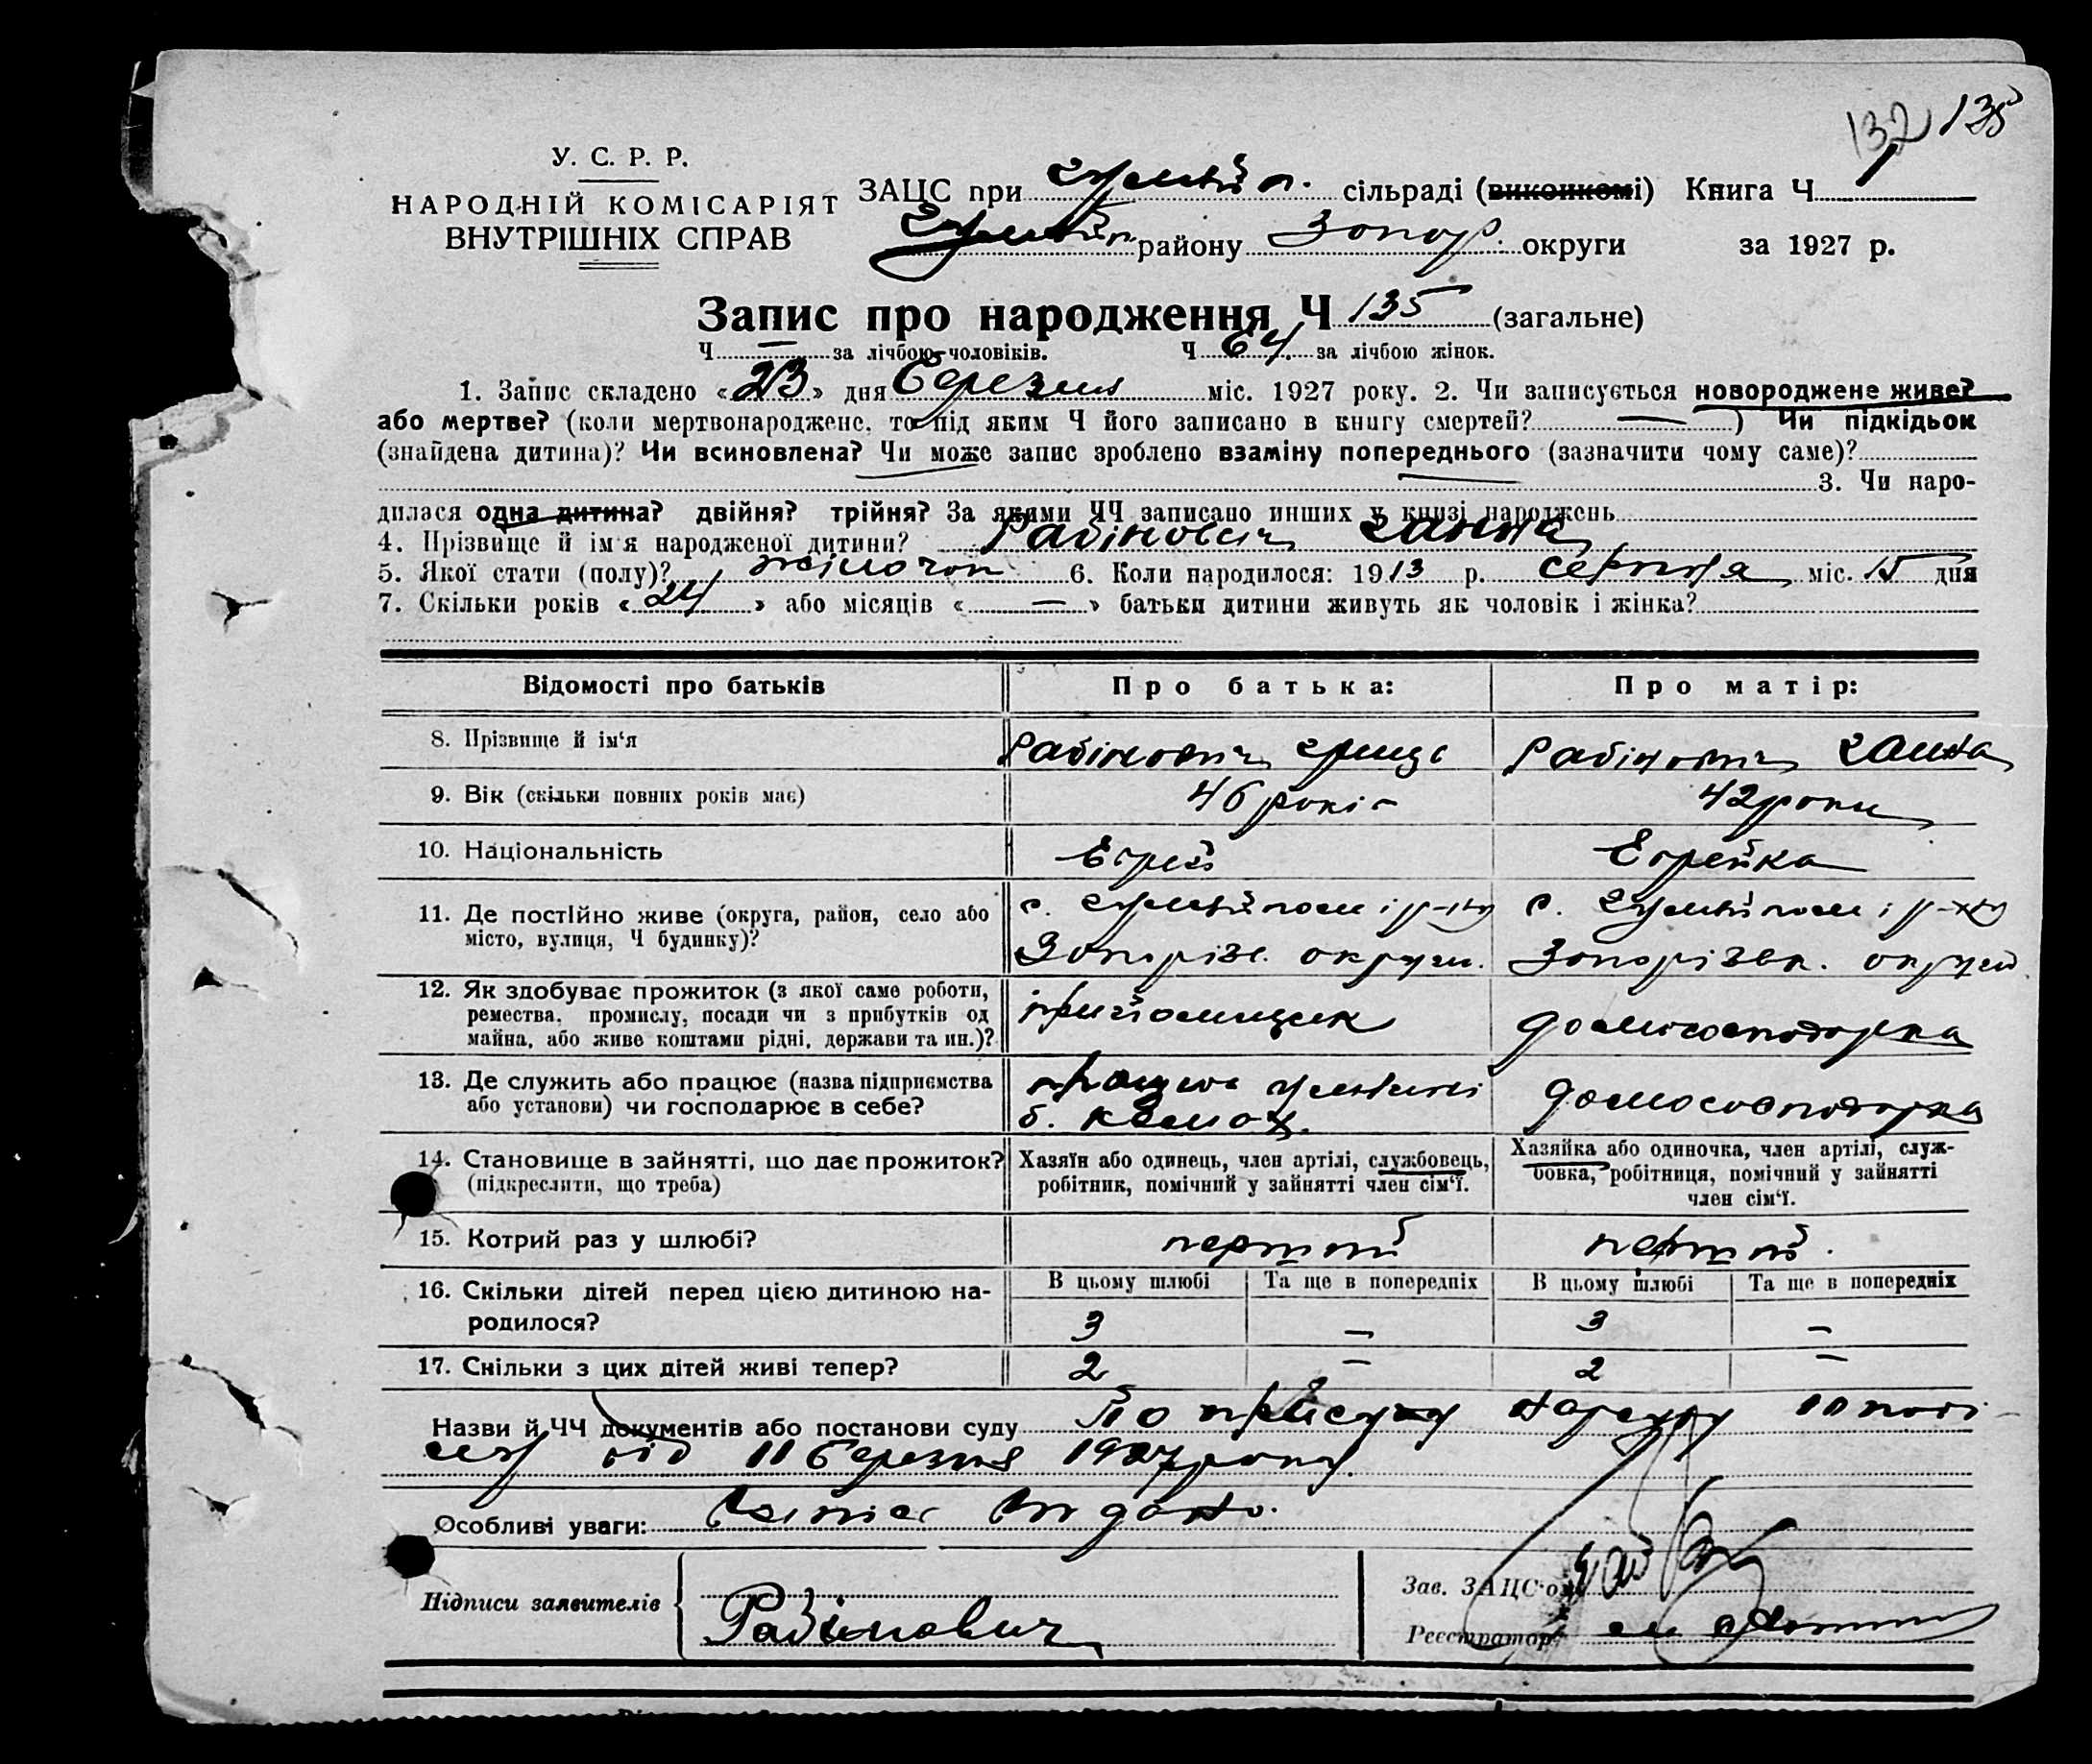 132 135
У. С. Р. Р.
НАРОДНІЙ КОМІСАРІЯТ
ВНУТРІШНІХ СПРАВ
ЗАЦС при Гуляйп. сільраді (виконкомі) Книга Ч 1
Гуляйп. району Запор. округи за 1927 р.
Запис про народження Ч 135 (загальне)
Ч — за лічбою чоловіків. Ч 64 за лічбою жінок.
1. Запис складено «23» дня березня міс. 1927 року. 2. Чи записується новороджене живе?
або мертве? (коли мертвонароджене, то під яким Ч його записано в книгу смертей? — ) Чи підкідьок
(знайдена дитина)? Чи всиновлена? Чи може запис зроблено взаміну попереднього (зазначити чому саме)?
3. Чи наро-
дилася одна дитина? двійня? трійня? За якими ЧЧ записано инших у книзі народжень
4. Прізвище й ім'я народженої дитини? Рабінович Ганна
5. Якої стати (полу)? жіночоп 6. Коли народилося: 1913 р. серпня міс. 15 дня
7. Скільки років «24» або місяців «—» батьки дитини живуть як чоловік і жінка?
Відомості про батьків Про батька: Про матір:
8. Прізвище й ім'я Рабінович Грицг Рабінович Ганна
9. Вік (скільки повних років має) 46 років 42 роки
10. Національність Еврей Еврейка
11. Де постійно живе (округа, район, село або с. Гуляйполе і р-ну с. Гуляйполе і р-ну
місто, вулиця, Ч будинку)? Запоріз. округи. Запорізьк. округи.
12. Як здобуває прожиток (з якої саме роботи,
ремества, промислу, посади чи з прибутків од прийомщик домогосподарка
майна, або живе коштами рідні, держави та ин.)?
13. Де служить або працює (назва підприємства працює домогосподарка
або установи) чи господарює в себе?
14. Становище в зайнятті, що дає прожиток?
(підкреслити, що треба)
Хазяїн або одинець, член артілі, службовець,
робітник, помічний у зайнятті член сім'ї.
Хазяйка або одиночка, член артілі, служ-
бовка, робітниця, помічний у зайнятті
член сім'ї.
15. Котрий раз у шлюбі? перший перший.
16. Скільки дітей перед цією дитиною на-
родилося?
В цьому шлюбі Та ще в попередніх В цьому шлюбі Та ще в попередніх
3 — 3 —
17. Скільки з цих дітей живі тепер? 2 — 2 —
Назви й ЧЧ документів або постанови суду По присуду Нарсуду
від 11 березня 1927 року.
Особливі уваги: видано.
Підписи заявителів Рабінович
Зав. ЗАЦС'ом
Реєстратор